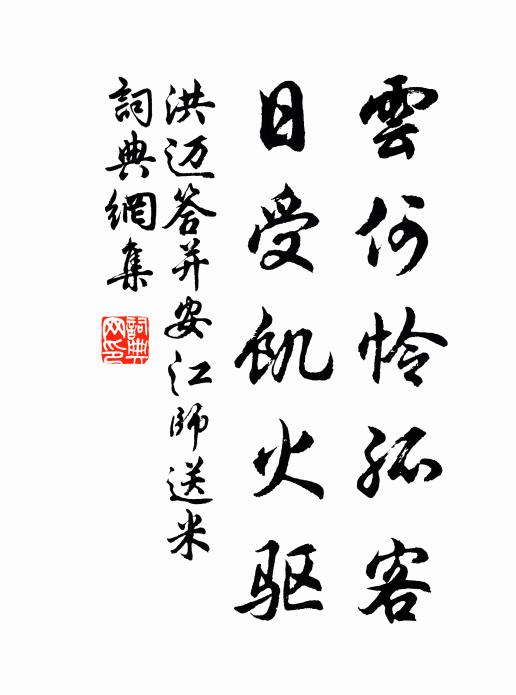 雲何怜孤客
日受飢火驱
洪迈答并安江師送米
詞典網集
詞典网印